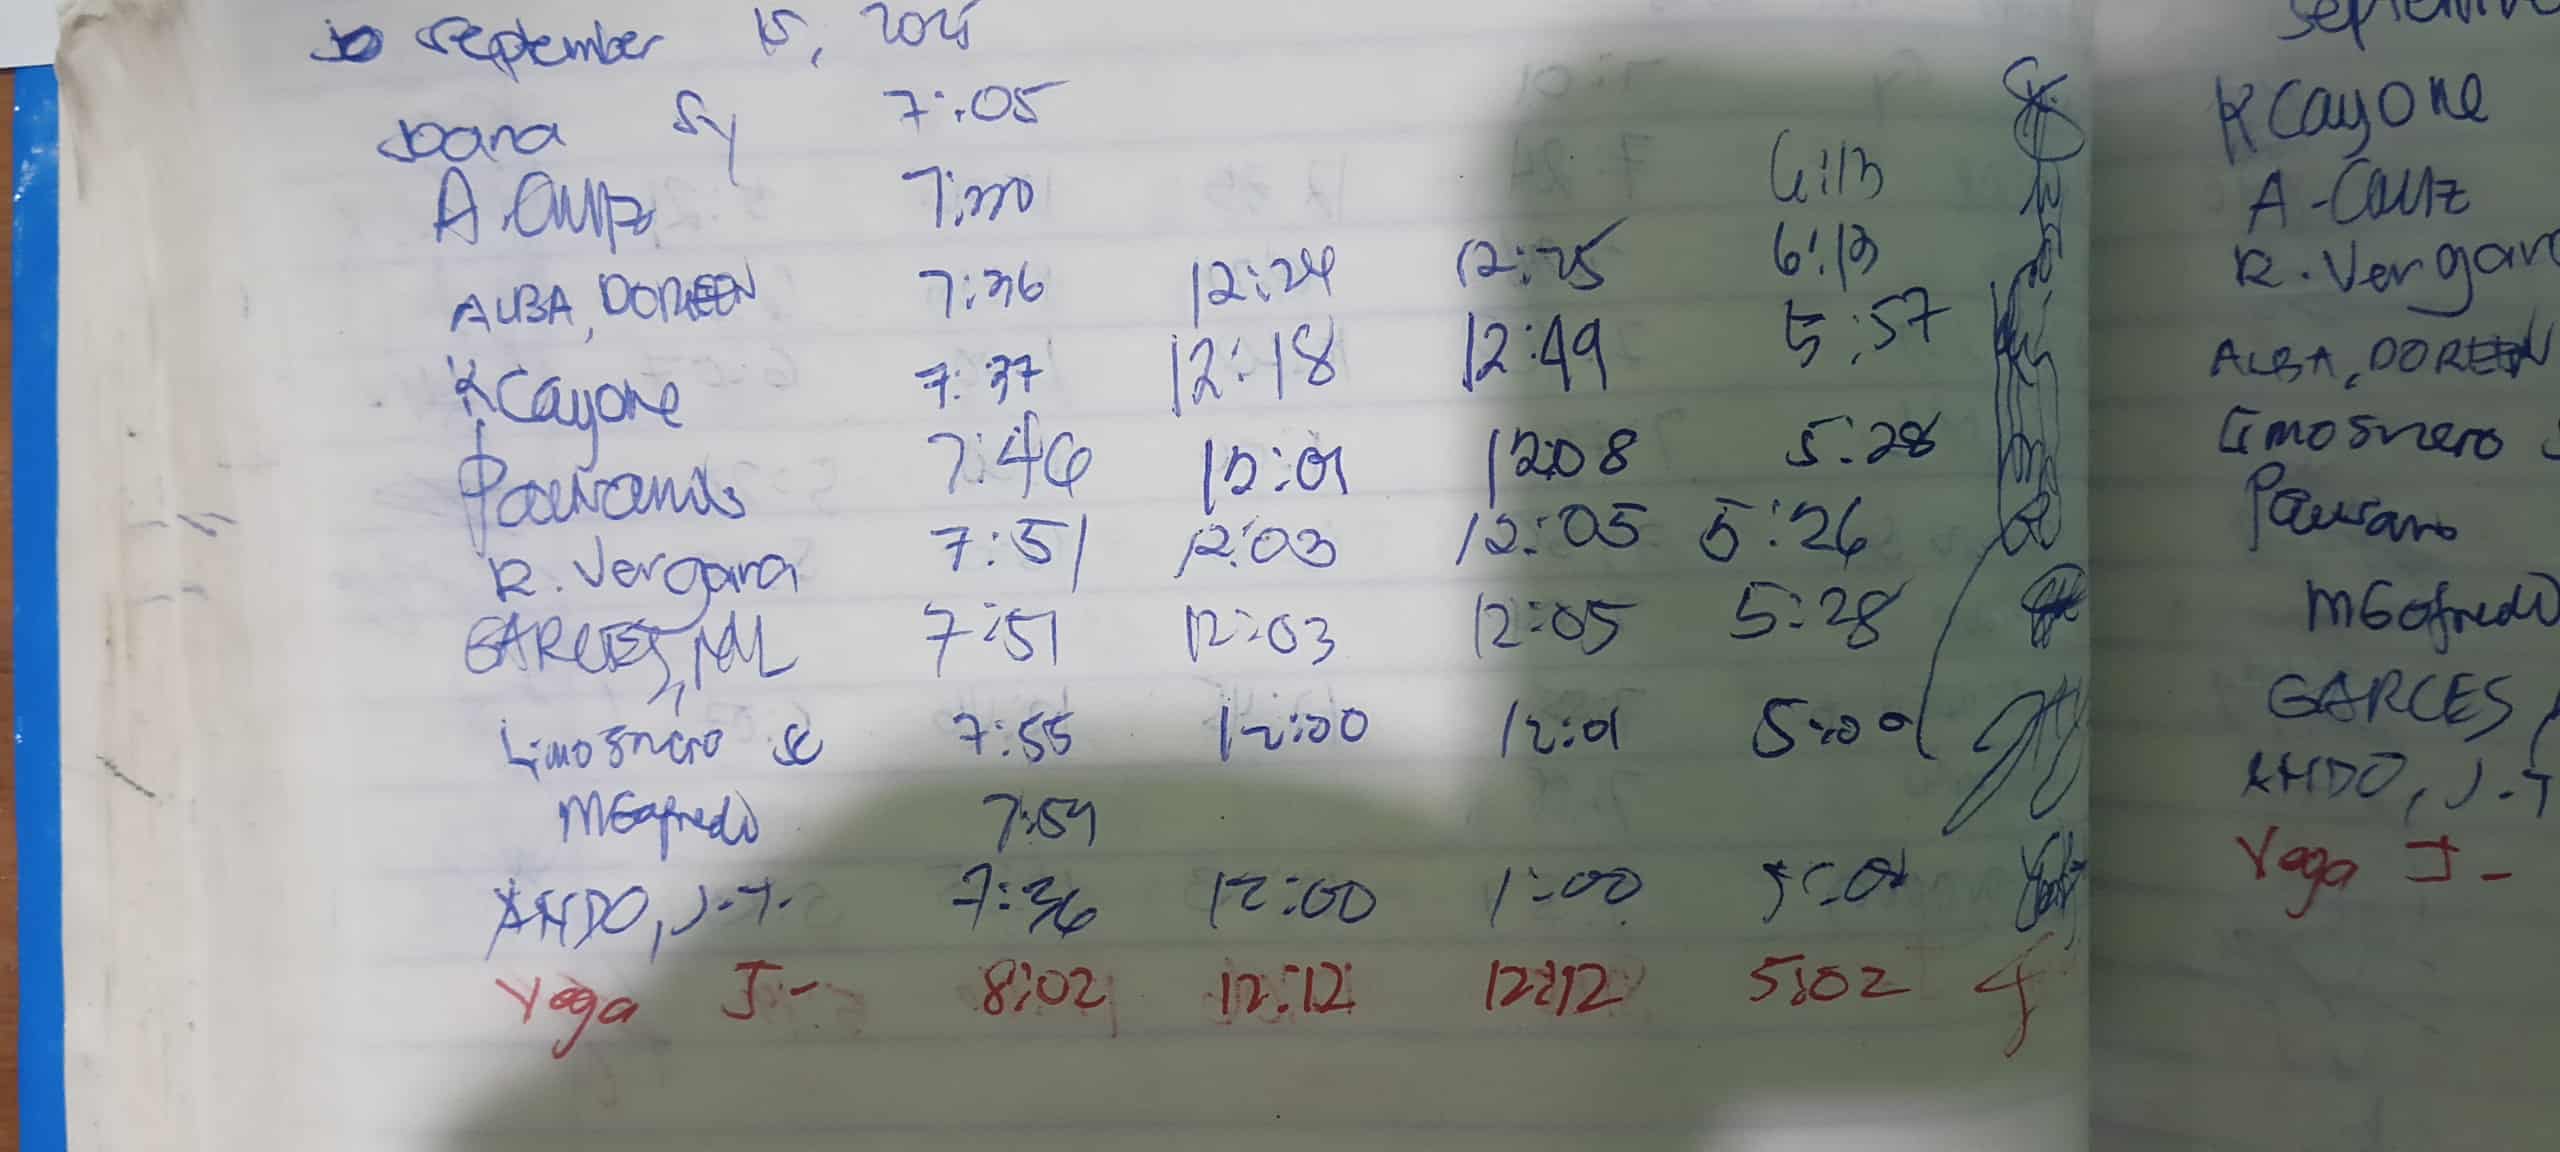 September 15, 2025
Joana Sy 7:05
A. Cruz 7:30 6:13
ALBA, DOREEN 7:36 12:24 12:25 6:13
K Cayone 7:37 12:18 12:49 5:57
7:46 12:01 12:08 5:28
R. Vergara 7:51 12:03 12:05 5:26
GARCES, ML 7:51 12:03 12:05 5:28
Limosnero SC 7:55 12:00 12:01 5:01
MGofredo 7:59
ANDO, J.T. 7:36 12:00 1:00 5:01
Yoga J- 8:02 12:12 12:12 5:02
K Cayone
A-Cruz
R. Vergara
ALBA, DOREEN
Limosnero
MGofredo
GARCES
ANDO, J.T
Yoga J-